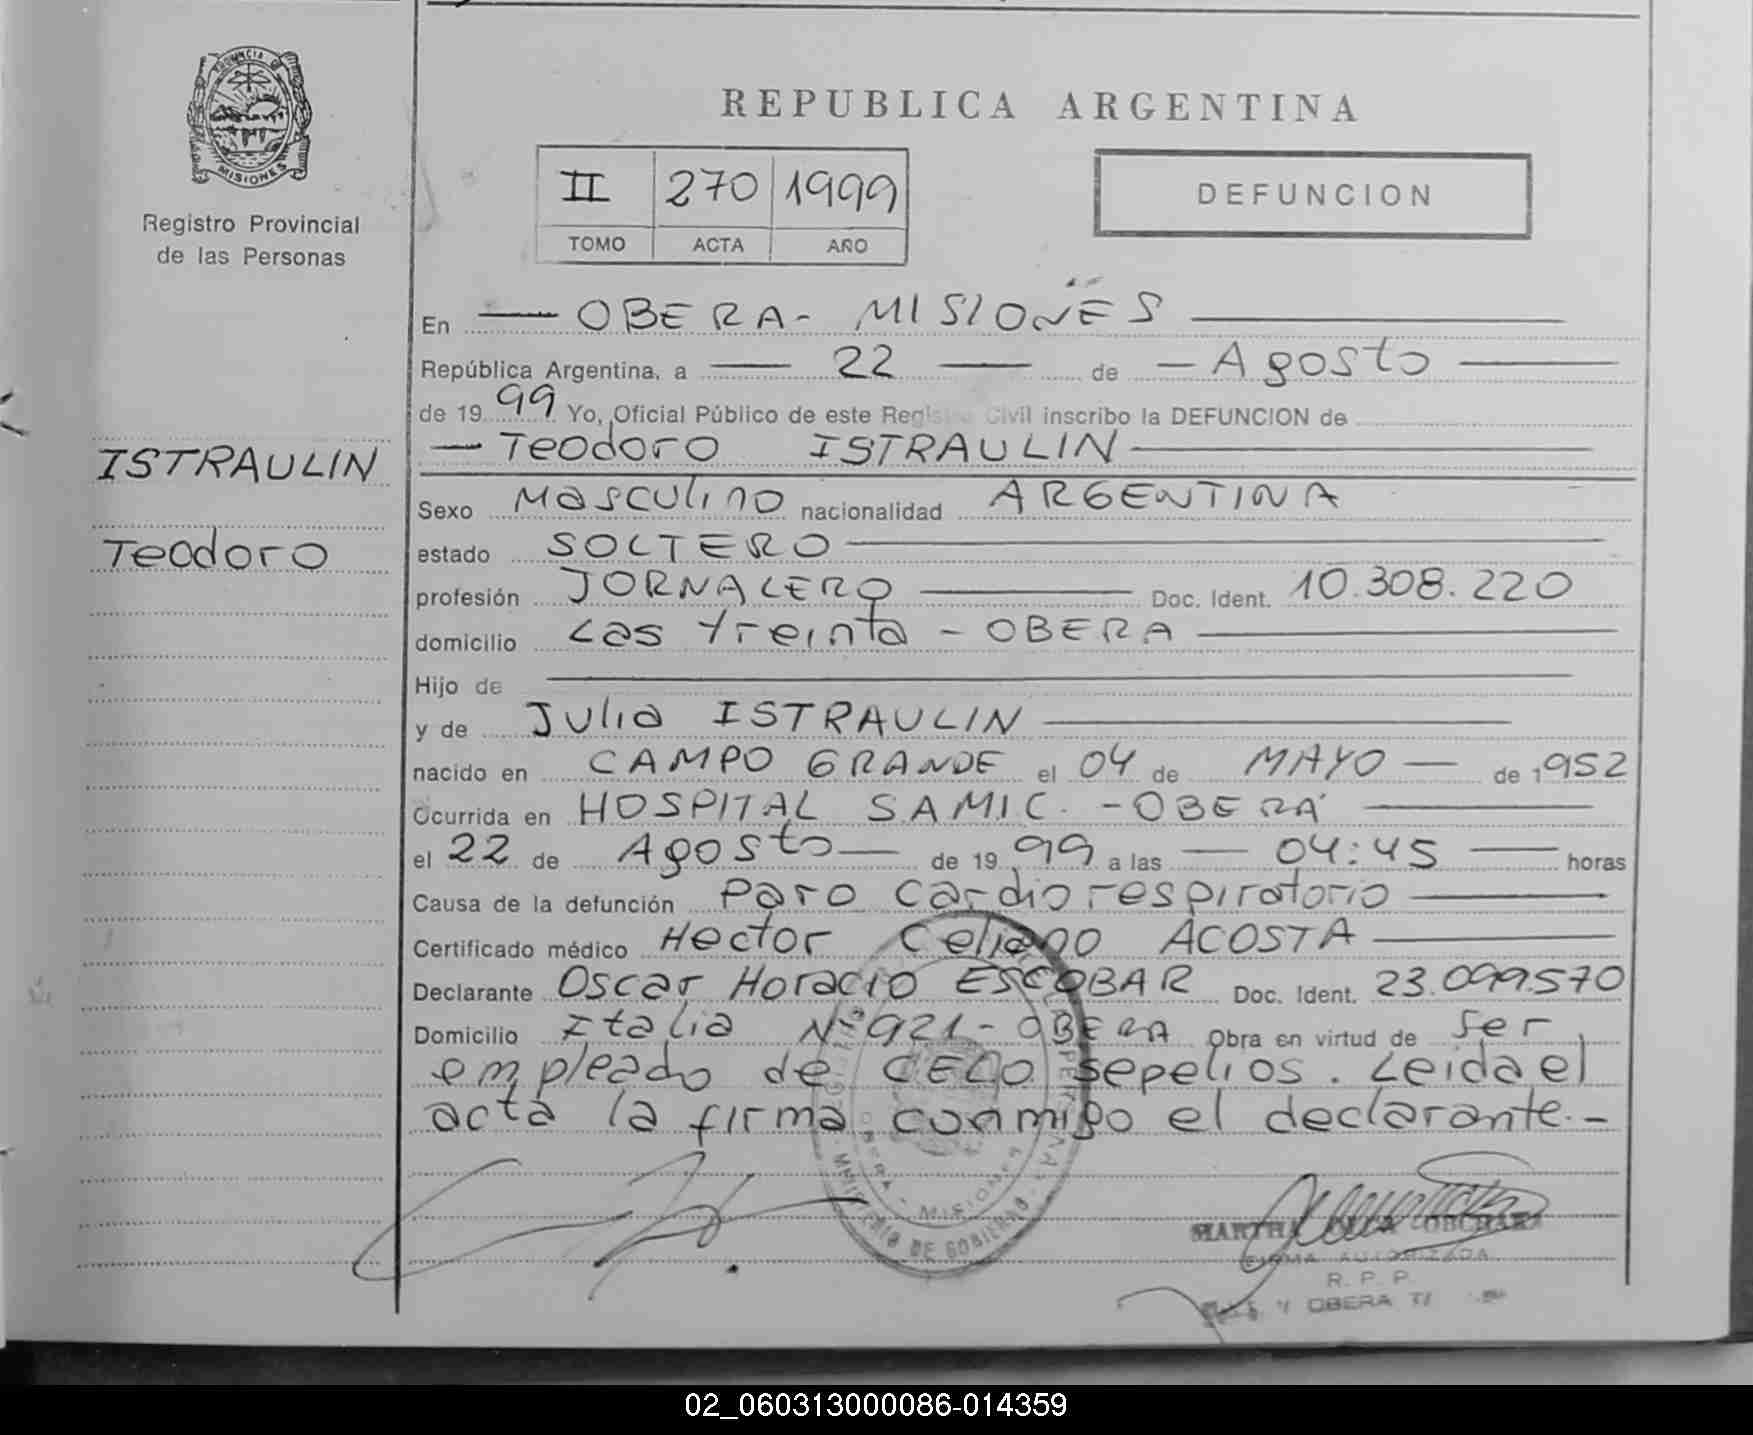 PROVINCIA DE
MISIONES
Registro Provincial
de las Personas
ISTRAULIN
Teodoro
REPUBLICA ARGENTINA
II 270 1999
TOMO ACTA AÑO
DEFUNCION
En — OBERA - MISIONES —
República Argentina, a — 22 — de — Agosto —
de 1999 Yo, Oficial Público de este Registro Civil inscribo la DEFUNCION de
— Teodoro ISTRAULIN —
Sexo Masculino nacionalidad ARGENTINA
estado SOLTERO —
profesión JORNALERO — Doc. Ident. 10.308.220
domicilio Las treinta - OBERA —
Hijo de —
y de Julia ISTRAULIN —
nacido en CAMPO GRANDE el 04 de MAYO — de 1952
Ocurrida en HOSPITAL SAMIC. - OBERÁ —
el 22 de Agosto — de 1999 a las — 04:45 — horas
Causa de la defunción Paro Cardiorespiratorio —
Certificado médico Hector Celiano ACOSTA —
Declarante Oscar Horacio ESCOBAR Doc. Ident. 23.099.570
Domicilio Italia Nº 921 - OBERA Obra en virtud de Ser
empleado de CELO Sepelios. Leida el
acta la firma conmigo el declarante.-
OBERA - MISIONES
MINISTERIO DE GOBIERNO
MARTHA
FIRMA AUTORIZADA
R. P. P.
OBERA
02_060313000086-014359